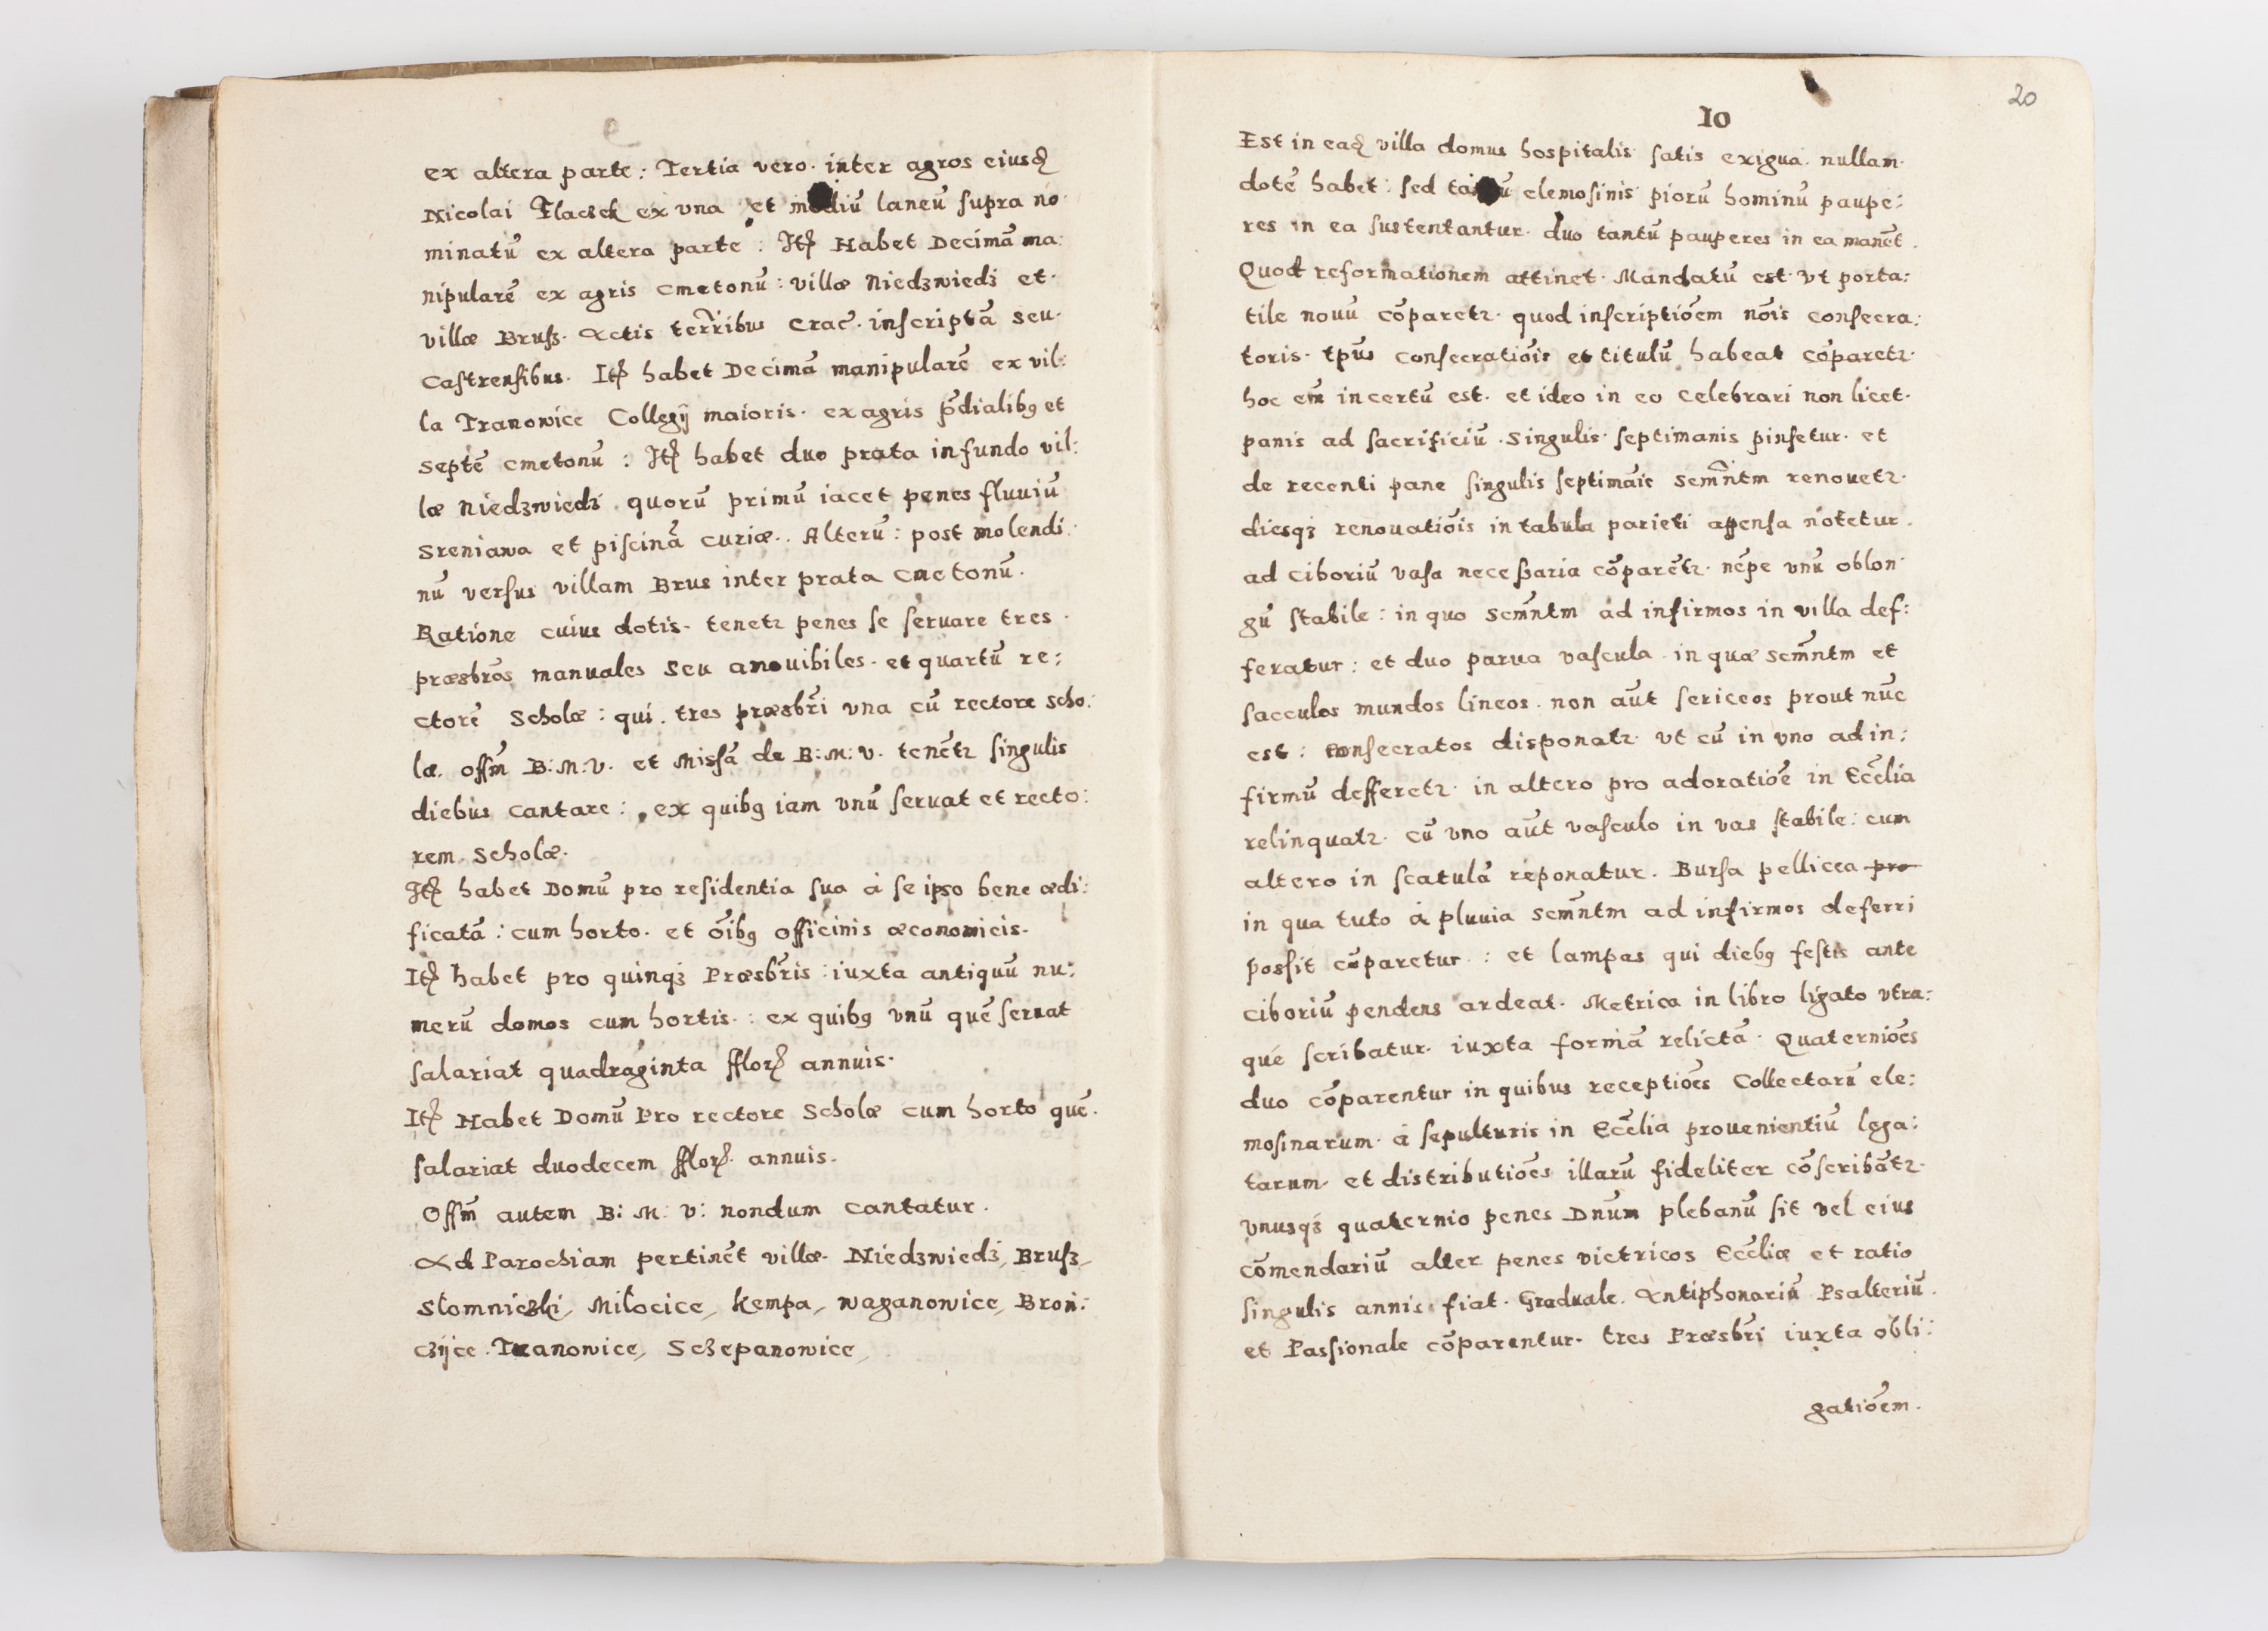 ex altera parte : Tertia vero. inter agros eiusđ
Nicolai ex vna et mediū laneū ſupra no
minatū ex altera parte : Itꝫ Habet Decimā ma:
nipularē ex agris cmetonū : villæ Niedzwiedz et.
villæ Bruſz. Actis terr̃ibus Crac̃. inſcriptā seu.
Caſtrenſibus. Itꝫ habet Decimā manipularē ex vil:
la Tranowice Collegij maioris. ex agris p̃dialibꝰ et
septē cmetonū : Itꝫ habet duo prata in fundo vil:
læ Niedzwiedz quorū primū iacet penes fluuiū
Sreniawa et piſcinā curiæ.. Alterū : post molendi:
nū verſus villam Brus inter prata cmetonū.
Ratione cuius dotis. tenetꝛ penes ſe ſeruare tres.
præsbr̃os manuales seu amouibiles. et quartū re:
ctorē Scholæ : qui. tres præsbr̃i vna cū rectore scho:
læ. offm̃ B: M: V. et Miſsā de B: M: V. tenēt̃ꝛ ſingulis
diebus cantare : ex quibꝰ iam vnū ſeruat et recto:
rem Scholæ.
Itꝫ habet Domū pro reſidentia ſua à ſe ipso bene ædi:
ficatā : cum horto. et õibꝰ officinis æconomicis.
Itꝫ habet pro quinqꝫ Præsbr̃is : iuxta antiquū nu:
merū domos cum hortis. : ex quibꝰ vnū quē ſeruat
ſalariat quadraginta fflorꝫ annuis.
Itꝫ Habet Domū Pro rectore Scholæ cum horto quē.
ſalariat duodecem fflorꝫ. annuis.
Offm̃ autem B: M: V: nondum cantatur.
Ad Parochiam pertinēt villæ. Niedzwiedz, Bruſz,
Słomniczki, Miłocice, Kempa, Waganowice, Broń:
czijce. Tranowice, Sczepanowice,
20
10
Est in eađ villa domus hospitalis ſatis exigua. nullam
dotē habet : ſed tantū elemoſinis piorū hominū paupe:
res in ea ſustentantur. duo tantū pauperes in ea manēt.
Quod reformationem attinet. Mandatū est. vt porta:
tile nouū cōparetꝛ. quod inſcriptiōem nōis conſecra:
toris. tp̃us conſecratiōis et titulū habeat cōparetꝛ.
hoc em̃ incertū est. et ideo in eo celebrari non licet.
panis ad ſacrificiū. singulis ſeptimanis pinſetur. et
de recenti pane ſingulis ſeptimāis scm̃ntm renouetꝛ.
diesqꝫ renouatiōis in tabula parieti appenſa notetur.
ad ciboriū vaſa neceſsaria cōparēt̃ꝛ. nēpe vnū oblon
gū ſtabile : in quo scm̃ntm ad infirmos in villa def:
feratur : et duo parua vaſcula in quæ scm̃ntm et
ſacculos mundos lineos. non aūt ſericeos prout nūc
est : conſecratos disponatꝛ. vt cū in vno ad in:
firmū defferetꝛ. in altero pro adoratiōe in Eccl̃ia
relinquatꝛ. cū vno aūt vaſculo in vas ſtabile : cum
altero in ſcatulā reponatur. Burſa pellicea pro
in qua tuto à pluuia scm̃ntm ad infirmos deferri
poſsit cōparetur. : et lampas qui diebꝰ feſtis ante
ciboriū pendens ardeat. Metrica in libro ligato vtra:
que ſcribatur. iuxta formā relictā. Quaterniōes
duo cōparentur in quibus receptiōes Collectarū ele:
moſinarum. à ſepulturis in Eccl̃ia prouenientiū lega:
tarum. et distributiōes illarū fideliter cōſcribāt̃ꝛ.
vnusqꝫ quaternio penes Dnūm plebanū ſit vel eius
cōmendariū alter penes victricos Eccl̃iæ et ratio
ſingulis annis fiat. Graduale. Antiphonariū Psalteriū.
et Paſsionale cōparentur. tres Præsbr̃i iuxta obli:
gatiōem.